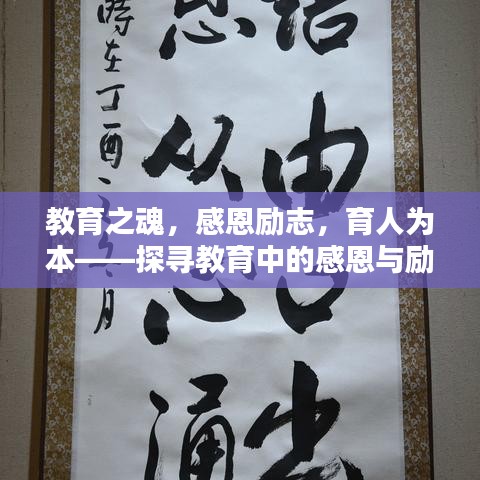 由
出
从
涌
時在丁酉
月
教育之魂，感恩励志，育人为
本——探寻教育中的感恩与励